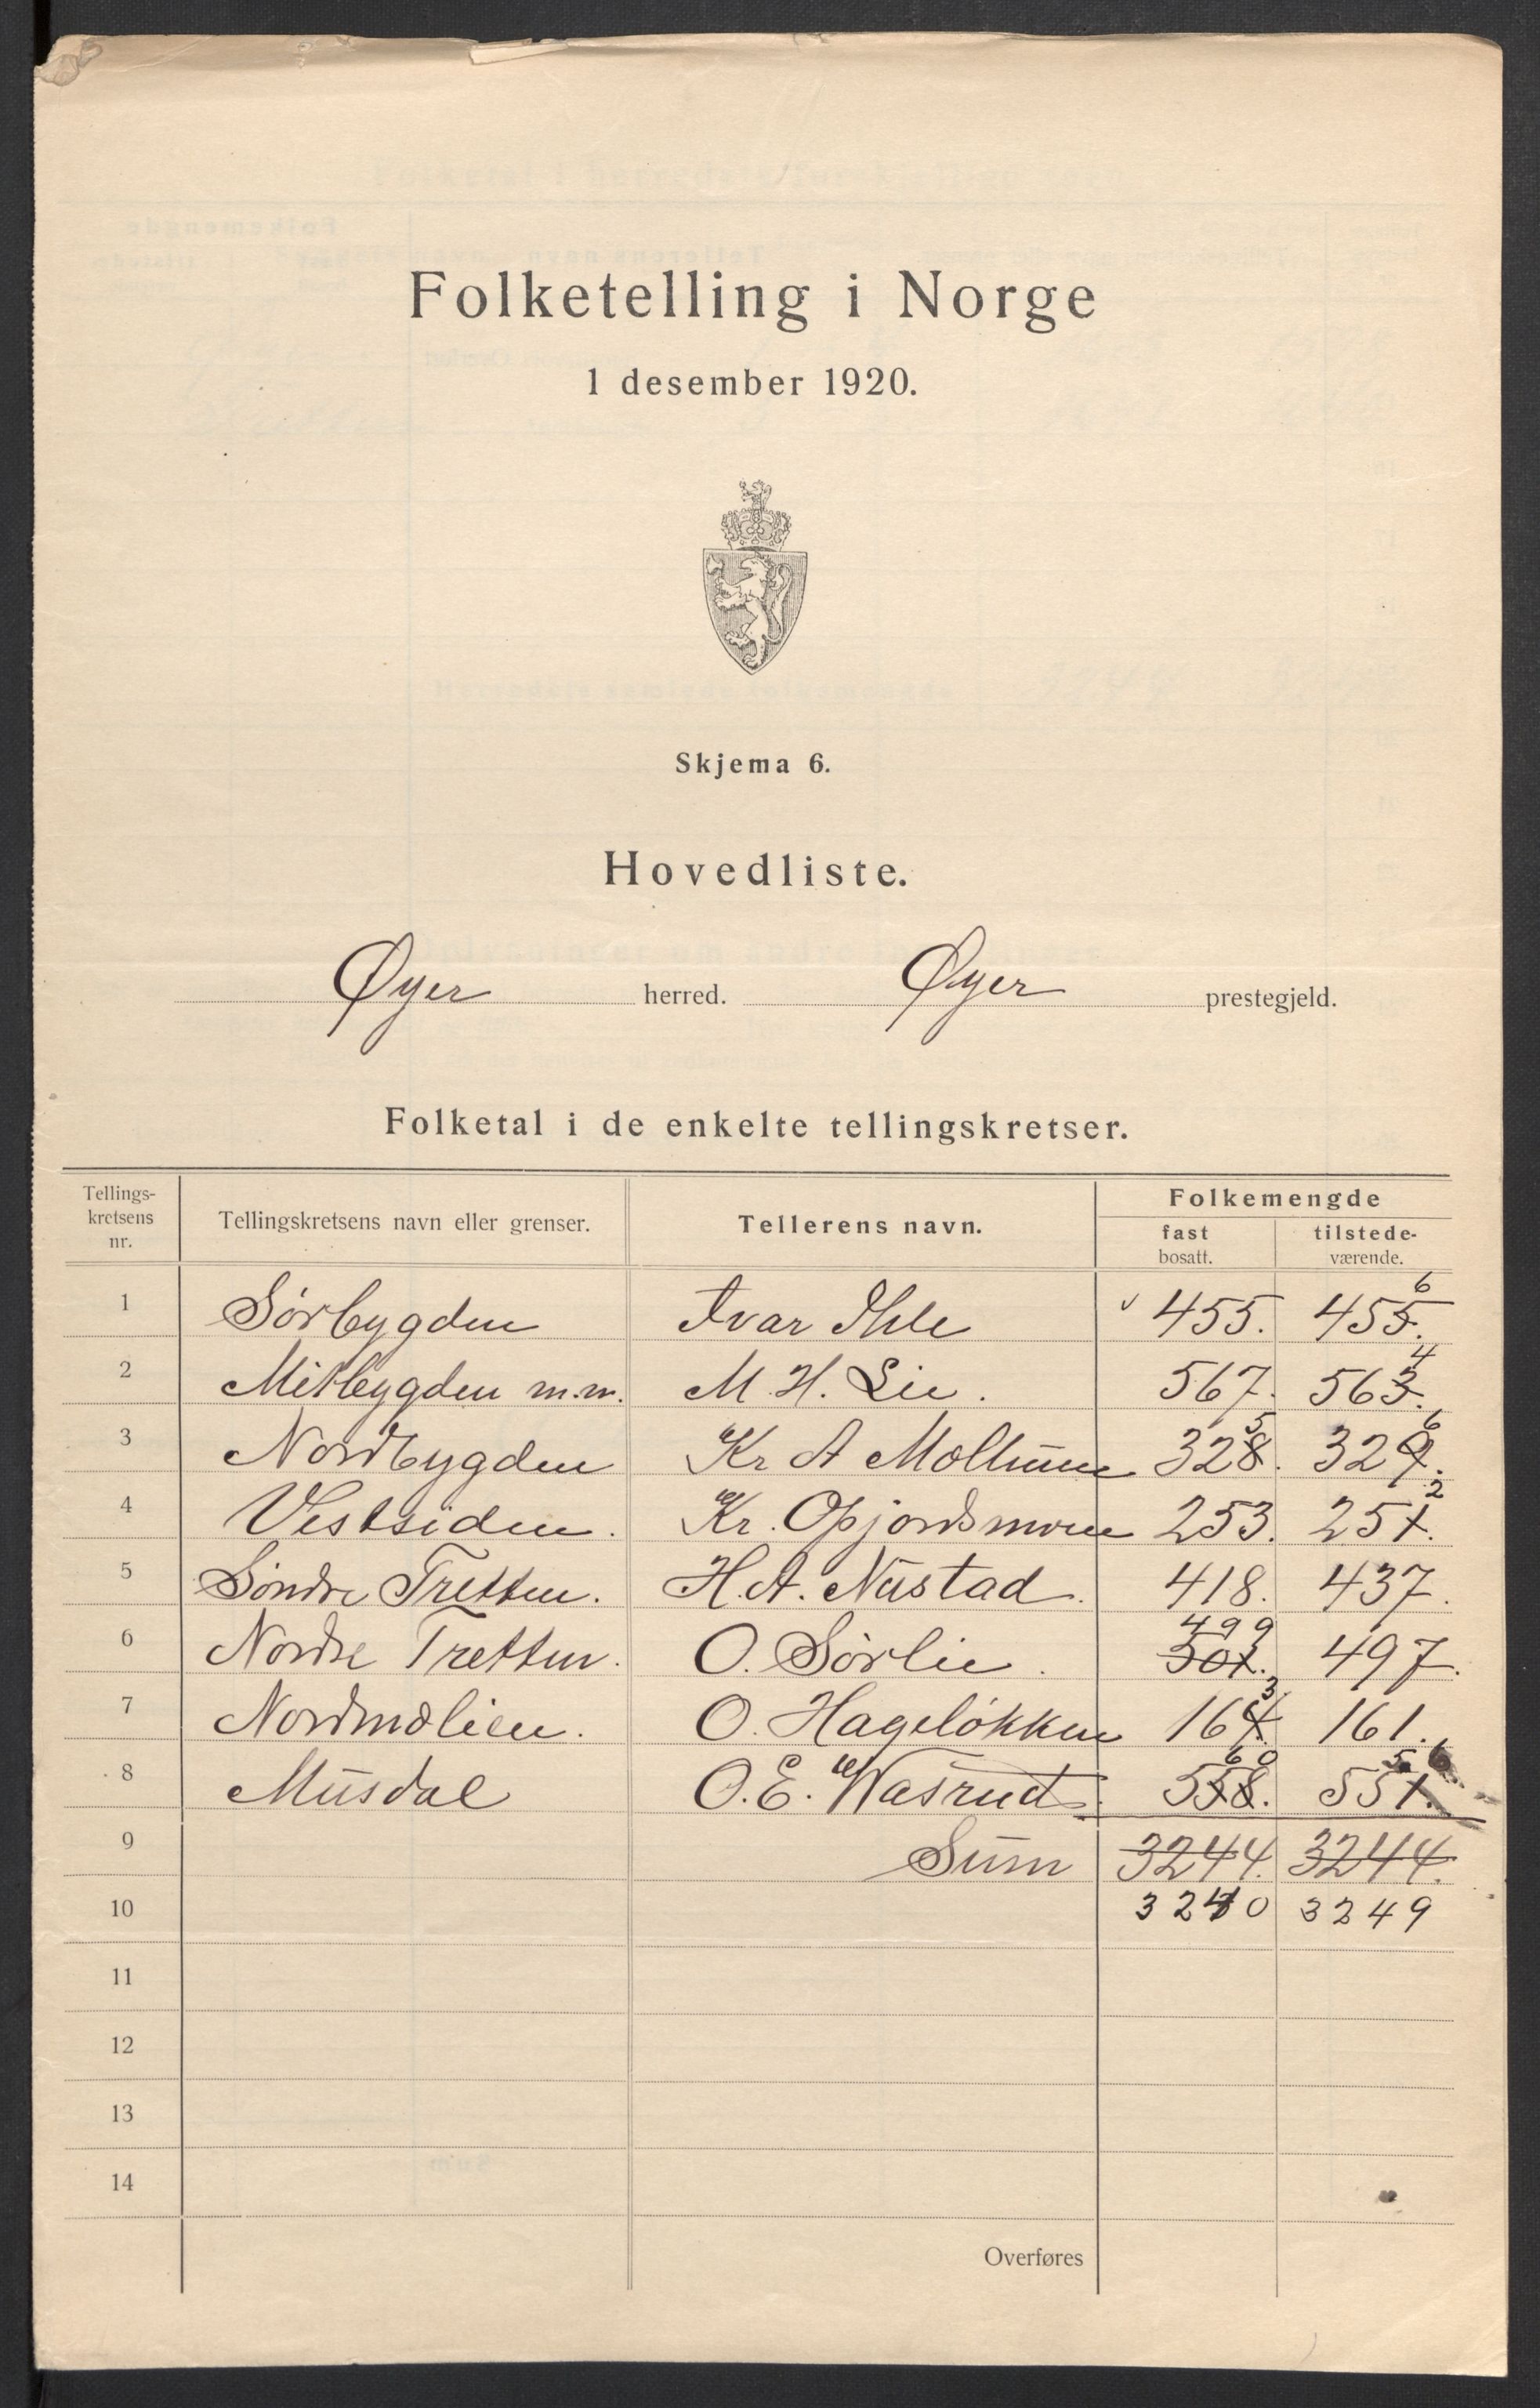 Folketelling i Norge
1 desember 1920.
Skjema 6.
Hovedliste.
Øyer herred. Øyer prestegjeld.
Folketal i de enkelte tellingskretser.
Tellings-kretsens nr. Tellingskretsens navn eller grenser. Tellerens navn. Folkemengde fast bosatt. tilstede-værende.
6
1 Sørbygden Ivar Ihle 455. 455.
4
2 Mitbygden m.m. M. H. Lie. 567. 563.
5 6
3 Nordbygden Kr A 328. 329.
2
4 Vestsiden. Kr. Opjordsmoen 253. 251.
5 Søndre Tretten. H. A. Nustad. 418. 437.
499
6 Nordre Tretten. O. Sørlie. 501. 497.
3
7 Nordmølien. O. Hageløkken 164. 161.
60 56.
8 Musdal O. E. Wasrud. 558. 551.
9 Sum 3244. 3244.
10 3240 3249
11
12
13
14
Overføres